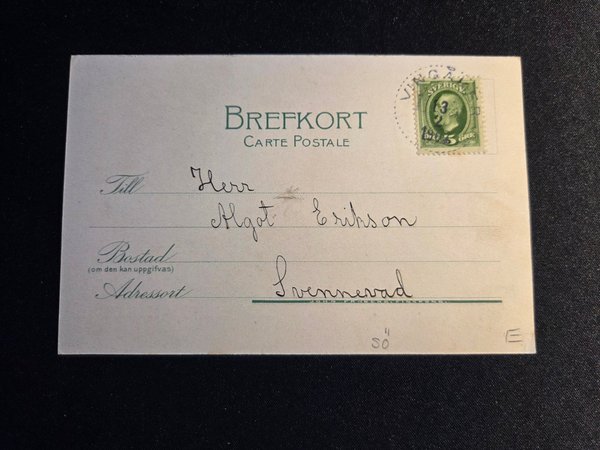 BREFKORT
CARTE POSTALE
SVERIGE
5 ÖRE
Till Herr
Algot Erikson
Bostad
(om den kan uppgifvas)
Adressort Svennevad
SÖ
E